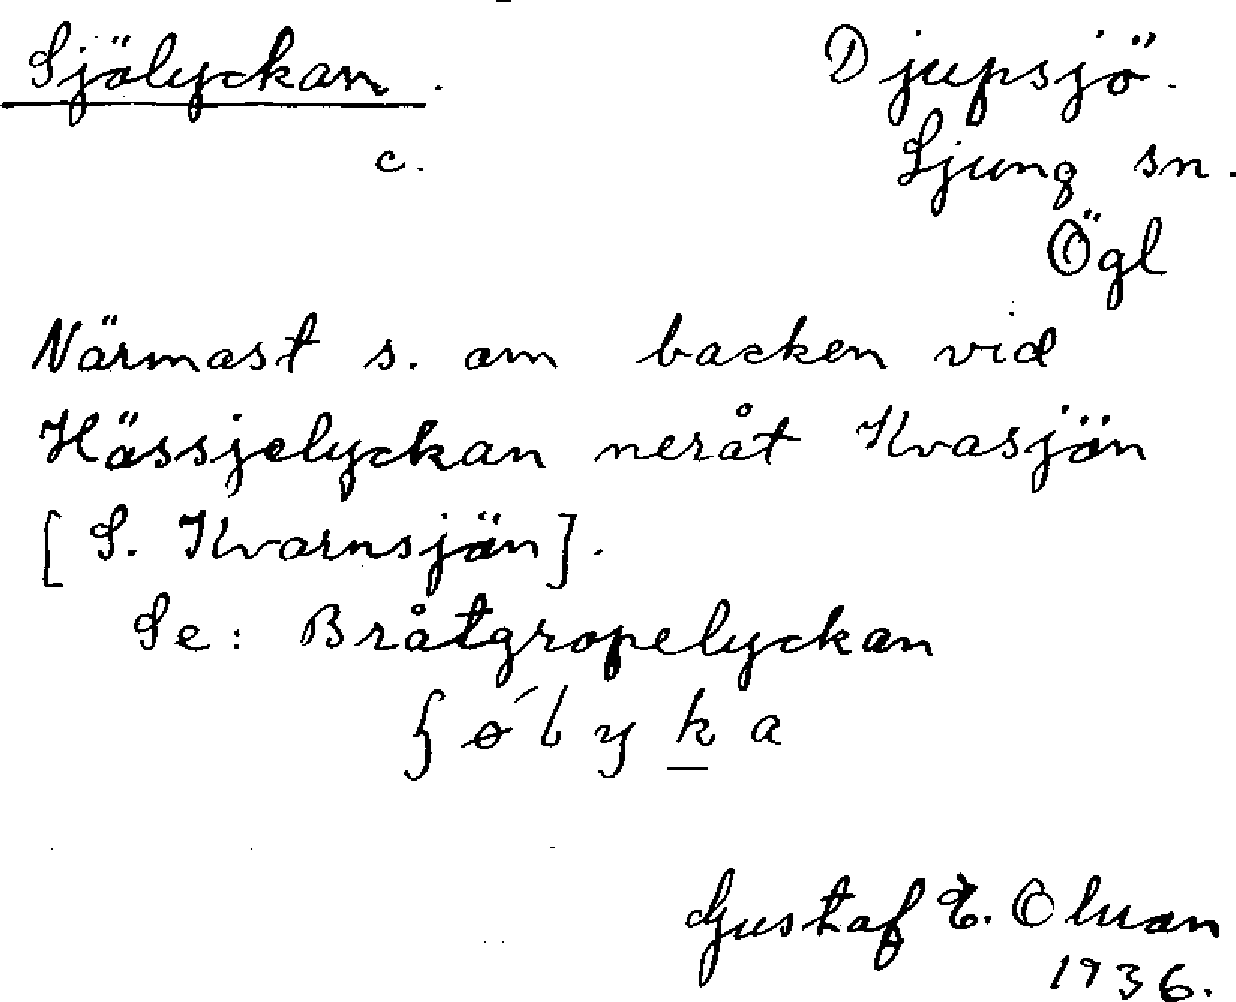 Sjölyckan.
Djupsjö.
c.
Ljung sn.
Ögl
Närmast s. om backen vid
Hässjelyckan neråt Kvasjön
[S. Kvarnsjön].
Se: Bråtgropelyckan
ʃøʹlyka
Gustaf E.
1936.